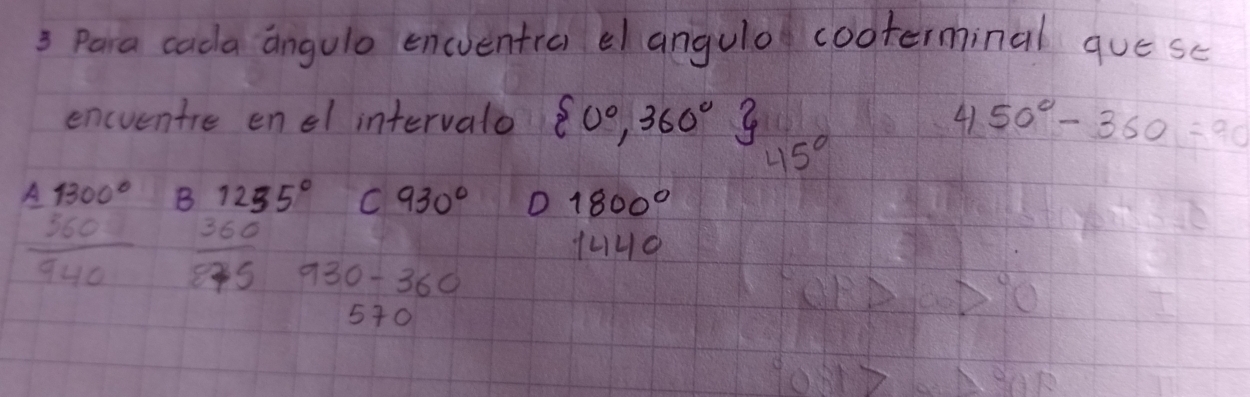 3 Para cada ángulo encuentra el angulo cooterminal que se
encuentre en el intervalo {0°, 360° }
45°
450° - 360 = 90
A 1300° B 1235° C 930° D 1800°
360 360 1440
940 875 930 - 360
570